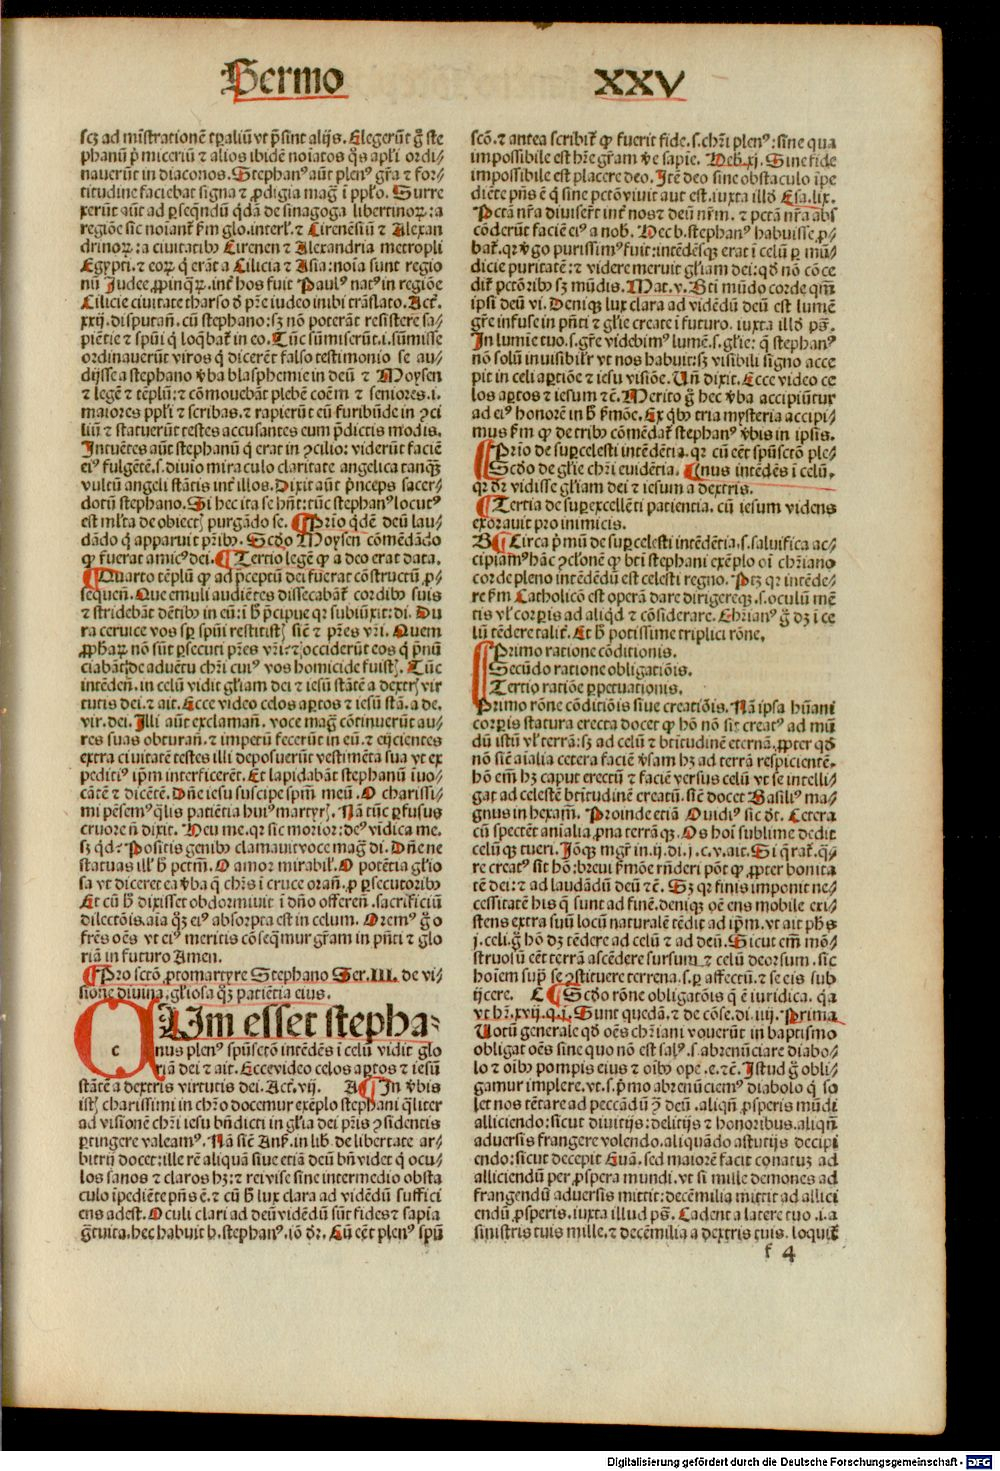 Sermo XXV
scꝫ ad mīstrationē tꝑaliū vt p̄sint alijs. Elegerūt g̊ ste
phanū p̄miceriū ⁊ alios ibidē noīatos q̊s apłi ordi⸗
nauerūt in diaconos. Stephanꝰ aūt plenꝰ gr̄a ⁊ for⸗
titudine faciebat signa ⁊ ꝓdigia maḡ ī ppło. Surre
xerūt aūt ad ꝑseqn̄dū q̄dā de sinagoga libertinoꝝ: a
regiōe sic noiant᷑ ẜm glo. interł. ⁊ Cirenēsiū ⁊ Alexan
drinoꝝ: a ciuitatibꝰ Cirenen ⁊ Alexandria metropli
Egypti. ⁊ eoꝝ q̄ erāt a Cilicia ⁊ Asia: noīa sunt regio
nū Judee ꝓpinq̄ꝝ. int᷑ hos fuit Paulꝰ natꝰ in regiōe
Cilicie ciuitate tharso d̊ pr̄e iudeo inibi trāslato. Act᷑.
xxij. disputan̄. cū stephano: sꝫ nō poterāt resistere sa⸗
piētie ⁊ spūi q̄ loq̄bat᷑ in eo. Tūc sūmiserūt. i. sūmisse
ordinauerūt viros q̄ dicerēt falso testimonio se au⸗
dijsse a stephano v̄ba blasphemie in deū ⁊ Moysen
⁊ legē ⁊ tēplū: ⁊ cōmouebāt plebē coēm ⁊ seniores. i.
maiores ppłi ⁊ scribas. ⁊ rapierūt eū furibūde in ꝯci
liū ⁊ statuerūt testes accusantes eum p̄dictis modis.
Intuētes aūt stephanū q̄ erat in ꝯcilio: viderūt faciē
eiꝰ fulgētē. s. diuīo miraculo claritate angelica tanq̄ꝫ
vultū angeli stātis int᷑ illos. Dixit aūt p̄nceps sacer⸗
dotū stephano. Si hec ita se hn̄t: tūc stephanꝰ locutꝰ
est mł̄ta de obiectꝭ purgādo se. ¶ Prīo q̇dē deū lau⸗
dādo q̄ apparuit pr̄ibꝰ. Scd̊o Moysen cōmēdādo
ꝙ fuerat amicꝰ dei. ¶ Tertio legē ꝙ a deo erat data.
¶ Quarto tēplū ꝙ ad p̄ceptū dei fuerat cōstructū ꝓ⸗
sequen̄. Que emuli audiētes dissecabāt᷑ cordibꝰ suis
⁊ stridebāt dētibꝰ in eū: ī h̊ p̄cipue qꝛ subiūxit: di. Du
ra ceruice vos sp̄ spūi restitistꝭ sic̄ ⁊ pr̄es vr̄i. Quem
ꝓphaꝝ nō sūt ꝑsecuti pr̄es vr̄i: ⁊ occiderūt eos q̄ p̄nū
ciabāt de aduētu chr̄i cuiꝰ vos homicide fuistꝭ. Tūc
intēden̄. in celū vidit gł̄iam dei ⁊ iesū stātē a dextrꝭ vir
tutis dei. ⁊ ait. Ecce video celos aꝑtos ⁊ iesū stā. a de.
vir. dei. Illi aūt exclaman̄. voce maḡ cōtinuerūt au⸗
res suas obturan̄. ⁊ impetū fecerūt in eū. ⁊ eijcientes
extra ciuitatē testes illi deposuerūt vestimēta sua vt ex
peditiꝰ ip̄m interficerēt. Et lapidabāt stephanū īuo⸗
cātē ⁊ dicētē. Dn̄e iesu suscipe spm̄ meū. O charissi⸗
mi pēsemꝰ q̄lis patiētia huiꝰ martyrꝭ. Nā tūc ꝑfusus
cruore n̄ dixit. Heu me. qꝛ sic morior: deꝰ vīdica me.
sꝫ q̇d: Positis genibꝰ clamauit voce maḡ di. Dn̄e ne
statuas ill̕ h̊ pctm̄. O amor mirabił. O potētia gł̄io
sa vt diceret ea v̄ba q̄ chr̄s ī cruce oran̄. ꝓ ꝑsecutoribꝰ
Et cū h̊ dixisset obdormiuit ī dn̄o offeren̄. sacrificiū
dilectōis. aīa q̄ꝫ eiꝰ absorpta est in celum. Oremꝰ g̊ o
fr̄es oēs vt eiꝰ meritis cōseq̄mur gr̄am in pn̄ti ⁊ glo
riā in futuro Amen.
¶ Pro sctō ꝓtomartyre Stephano Ser. III. de vi⸗
sione diuina. gł̄iosa q̄ꝫ patiētia eius.
c UIm esset stepha⸗
nus plenꝰ spūsctō intēdēs ī celū vidit glo
riā dei ⁊ ait. Ecce video celos aꝑtos ⁊ iesū
stātē a dextris virtutis dei. Act. vij. A ¶ In v̄bis
istꝭ charissimi in chr̄o docemur exēplo stephani q̄liter
ad visionē chr̄i iesu bn̄dicti in gł̄ia dei pr̄is ꝯsidentis
ꝑtingere valeamꝰ. Nā sic̄ Anš. in lib̄. de libertate ar⸗
bitrij docet: ille rē aliquā siue etiā deū bn̄ videt q̄ ocu⸗
los sanos ⁊ claros hꝫ: ⁊ rei vise sine intermedio obsta
culo īpediēte p̄ns ē. ⁊ cū h̊ lux clara ad vidēdū suffici
ens adest. Oculi clari ad deū vidēdū sūt fides ⁊ sapia
g̈tuita. hec habuit b. stephanꝰ. iō dr̄. Cū eēt plenꝰ spū
sctō. ⁊ antea scribit᷑ ꝙ fuerit fide. s. chr̄i plenꝰ: sine qua
impossibile est hr̄e gr̄am v̄e sapie. Heb̄. xj. Sine fide
impossibile est placere deo. Itē deo sine obstaculo īpe
diēte pn̄s ē q̄ sine pctō viuit aut est. iuxta illđ Esa. lix.
Pctā nr̄a diuiserūt int᷑ nos ⁊ deū nr̄m. ⁊ pctā nr̄a abs
cōderūt faciē eiꝰ a nob̄. Hec b. stephanꝰ habuisse ꝓ⸗
bat᷑. qꝛ v̄go purissimꝰ fuit: intēdēsqꝫ erat ī celū ꝑ mū⸗
dicie puritatē: ⁊ videre meruit gł̄iam dei: qđ nō cōce
dit᷑ pctōribꝰ sꝫ mūdis. Mat. v. Bt̄i mūdo corde qm̄
ipsi deū vi. Deniqꝫ lux clara ad vidēdū deū est lumē
gr̄e infuse in pn̄ti ⁊ gł̄ie create ī futuro. iuxta illđ pš.
In lumīe tuo. s. gr̄e videbimꝰ lumē. s. gł̄ie: q̄ stephanꝰ
nō solū inuisibilr̄ vt nos habuit: sꝫ visibili signo acce
pit in celi aꝑtiōe ⁊ iesu visiōe. Un̄ dixit. Ecce video ce
los aꝑtos ⁊ iesum ⁊c̄. Merito g̊ hec v̄ba accipiūtur
ad eiꝰ honorē in h̊ ẜmōe. Ex q̇bꝰ tria mysteria accipi⸗
mus ẜm ꝙ de tribꝰ cōmēdat᷑ stephanꝰ v̄bis in ipsis.
¶ Prīo de suꝑcelesti intēdētia. qꝛ cū eēt spūsctō ple⸗
Scd̊o de gł̄ie chr̄i euidētia. ¶nus intēdēs ī celū.
qꝛ dr̄ vidisse gł̄iam dei ⁊ iesum a dextris.
¶ Tertia de suꝑexcellēti patientia. cū iesum videns
exorauit pro inimicis.
B ¶ Circa p̄mū de suꝑcelesti intēdētia. s. saluifica ac⸗
cipiamꝰ hāc ꝯclōnē ꝙ bt̄i stephani exēplo oī chr̄iano
corde pleno intēdēdū est celesti regno. Ptꝫ qꝛ intēde⸗
re ẜm Catholicō est operā dare dirigereqꝫ. s. oculū mē
tis vł corꝑis ad aliq̇d ⁊ cōsiderare. Chr̄ianꝰ g̊ dꝫ ī ce
lū tēdere talit᷑. Et h̊ potissime triplici rōne.
¶ Primo ratione cōditionis.
Secūdo ratione obligatiōis.
Tertio ratiōe ꝑpetuationis.
Primo rōne cōditiōis siue creatiōis. Nā ipsa hūani
corꝑis statura erecta docet ꝙ hō nō sit creatꝰ ad mū
dū istū vł terrā: sꝫ ad celū ⁊ bt̄itudinē eternā. ꝓpter qđ
nō sic̄ aīalia cetera faciē v̄sam hꝫ ad terrā respicientē.
hō em̄ hꝫ caput erectū ⁊ faciē versus celū vt se intelli⸗
gat ad celestē bt̄itudinē creatū. sic̄ docet Basiliꝰ ma⸗
gnus in hexam̄. Proinde etiā Ouidiꝰ sic dt̄. Cetera
cū spectēt anīalia ꝓna terrā qꝫ. Os hoī sublime dedit
celū qꝫ tueri. Iōqꝫ mgr̄ in. ij. di. j. c. v. ait. Si q̄rat᷑. q̄⸗
re creatꝰ sit hō: breui ẜmōe rn̄deri pōt ꝙ ꝓpter bonita
tē dei: ⁊ ad laudādū deū ⁊c̄. Sꝫ qꝛ finis imponit ne⸗
cessitatē his q̄ sunt ad finē. deniqꝫ oē ens mobile exi⸗
stens extra suū locū naturalē tēdit ad ip̄m. vt ait ph̄s
j. celi. g̊ hō dꝫ tēdere ad celū ⁊ ad deū. Sicut em̄ mō⸗
struosū eēt terrā ascēdere sursum ⁊ celū deorsum. sic
hoīem suꝑ se ꝯstituere terrena. s. ꝑ affectū. ⁊ se eis sub
ijcere. C ¶ Scd̊o rōne obligatōis q̄ ē iuridica. q̄a
vt hr̄. xvij. q. j. Sunt quedā. ⁊ de cōse. di. iiij. Prima
Uotū generale qđ oēs chr̄iani vouerūt in baptismo
obligat oēs sine quo nō est salꝰ. s. abrenūciare diabo⸗
lo ⁊ oībꝰ pompis eius ⁊ oībꝰ ope. e. ⁊c̄. Istud g̊ obli⸗
gamur implere. vt. s. p̄mo abrenūciemꝰ diabolo q̄ so
let nos tētare ad peccādū ꝯ̄ deū. aliqn̄ ꝓsperis mūdi
alliciendo: sicut diuitijs: delitijs ⁊ honoribus. aliqn̄
aduersis frangere volendo. aliquādo astutijs decipi
endo: sicut decepit Euā. sed maiorē facit conatuꝫ ad
alliciendū per ꝓspera mundi. vt si mille demones ad
frangendū aduersis mittit: decēmilia mittit ad allici
endū ꝓsperis. iuxta illud pš. Cadent a latere tuo. i. a
sinistris tuis mille. ⁊ decēmilia a dextris tuis. loquit᷑
f 4
Digitalisierung gefördert durch die Deutsche Forschungsgemeinschaft - DFG